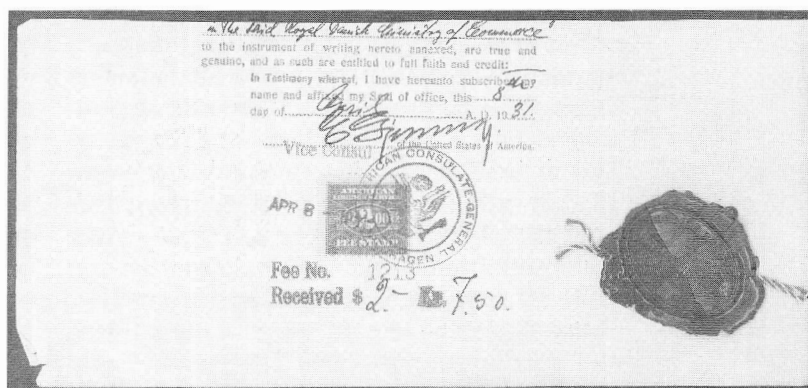 in the said Royal Danish Ministry of Commerce
to the instrument of writing hereto annexed, are true and
genuine, and as such are entitled to full faith and credit:
In Testimony whereof, I have hereunto subscribed
name and affixed my Seal of office, this 8
day of April A. D. 1931.
of the United States of America.
Vice Consul
AMERICAN CONSULATE-GENERAL
APR 8
AMERICAN
2.00
FEE STAMP
Fee No. 1213
Received $ 2- Kr. 7.50.